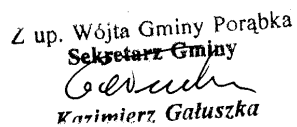 Z up. Wójta Gminy Porąbka
Sekretarz Gminy
Kazimierz Gałuszka